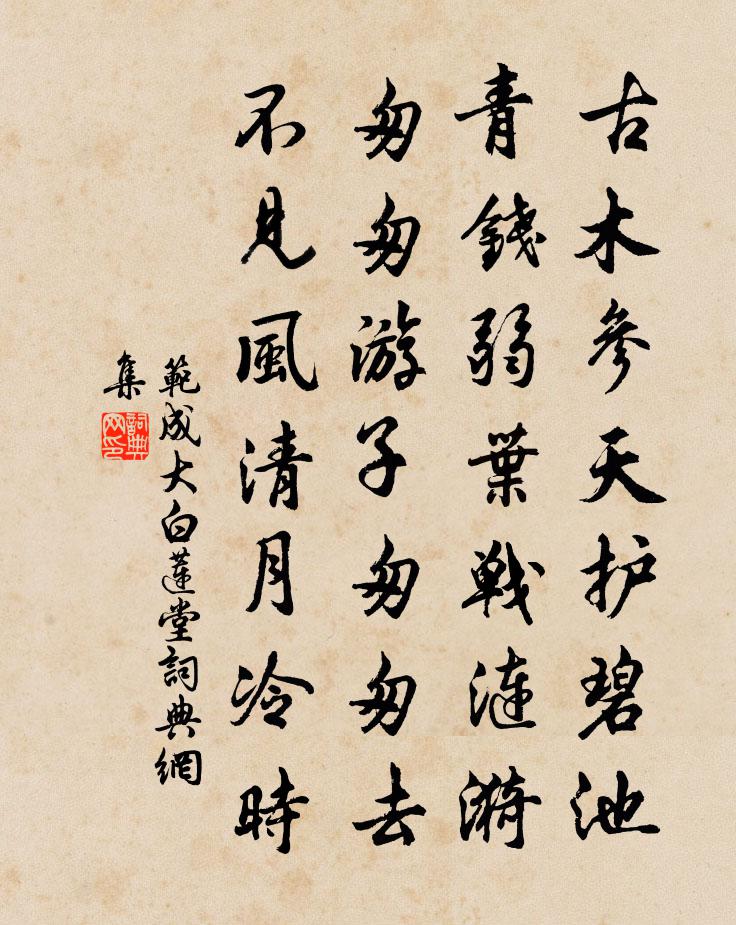 古木參天护碧池
青錢弱葉戦漣漪
匆匆游子匆匆去
不見風清月冷時
範成大白蓮堂詞典網
集
詞典
网印